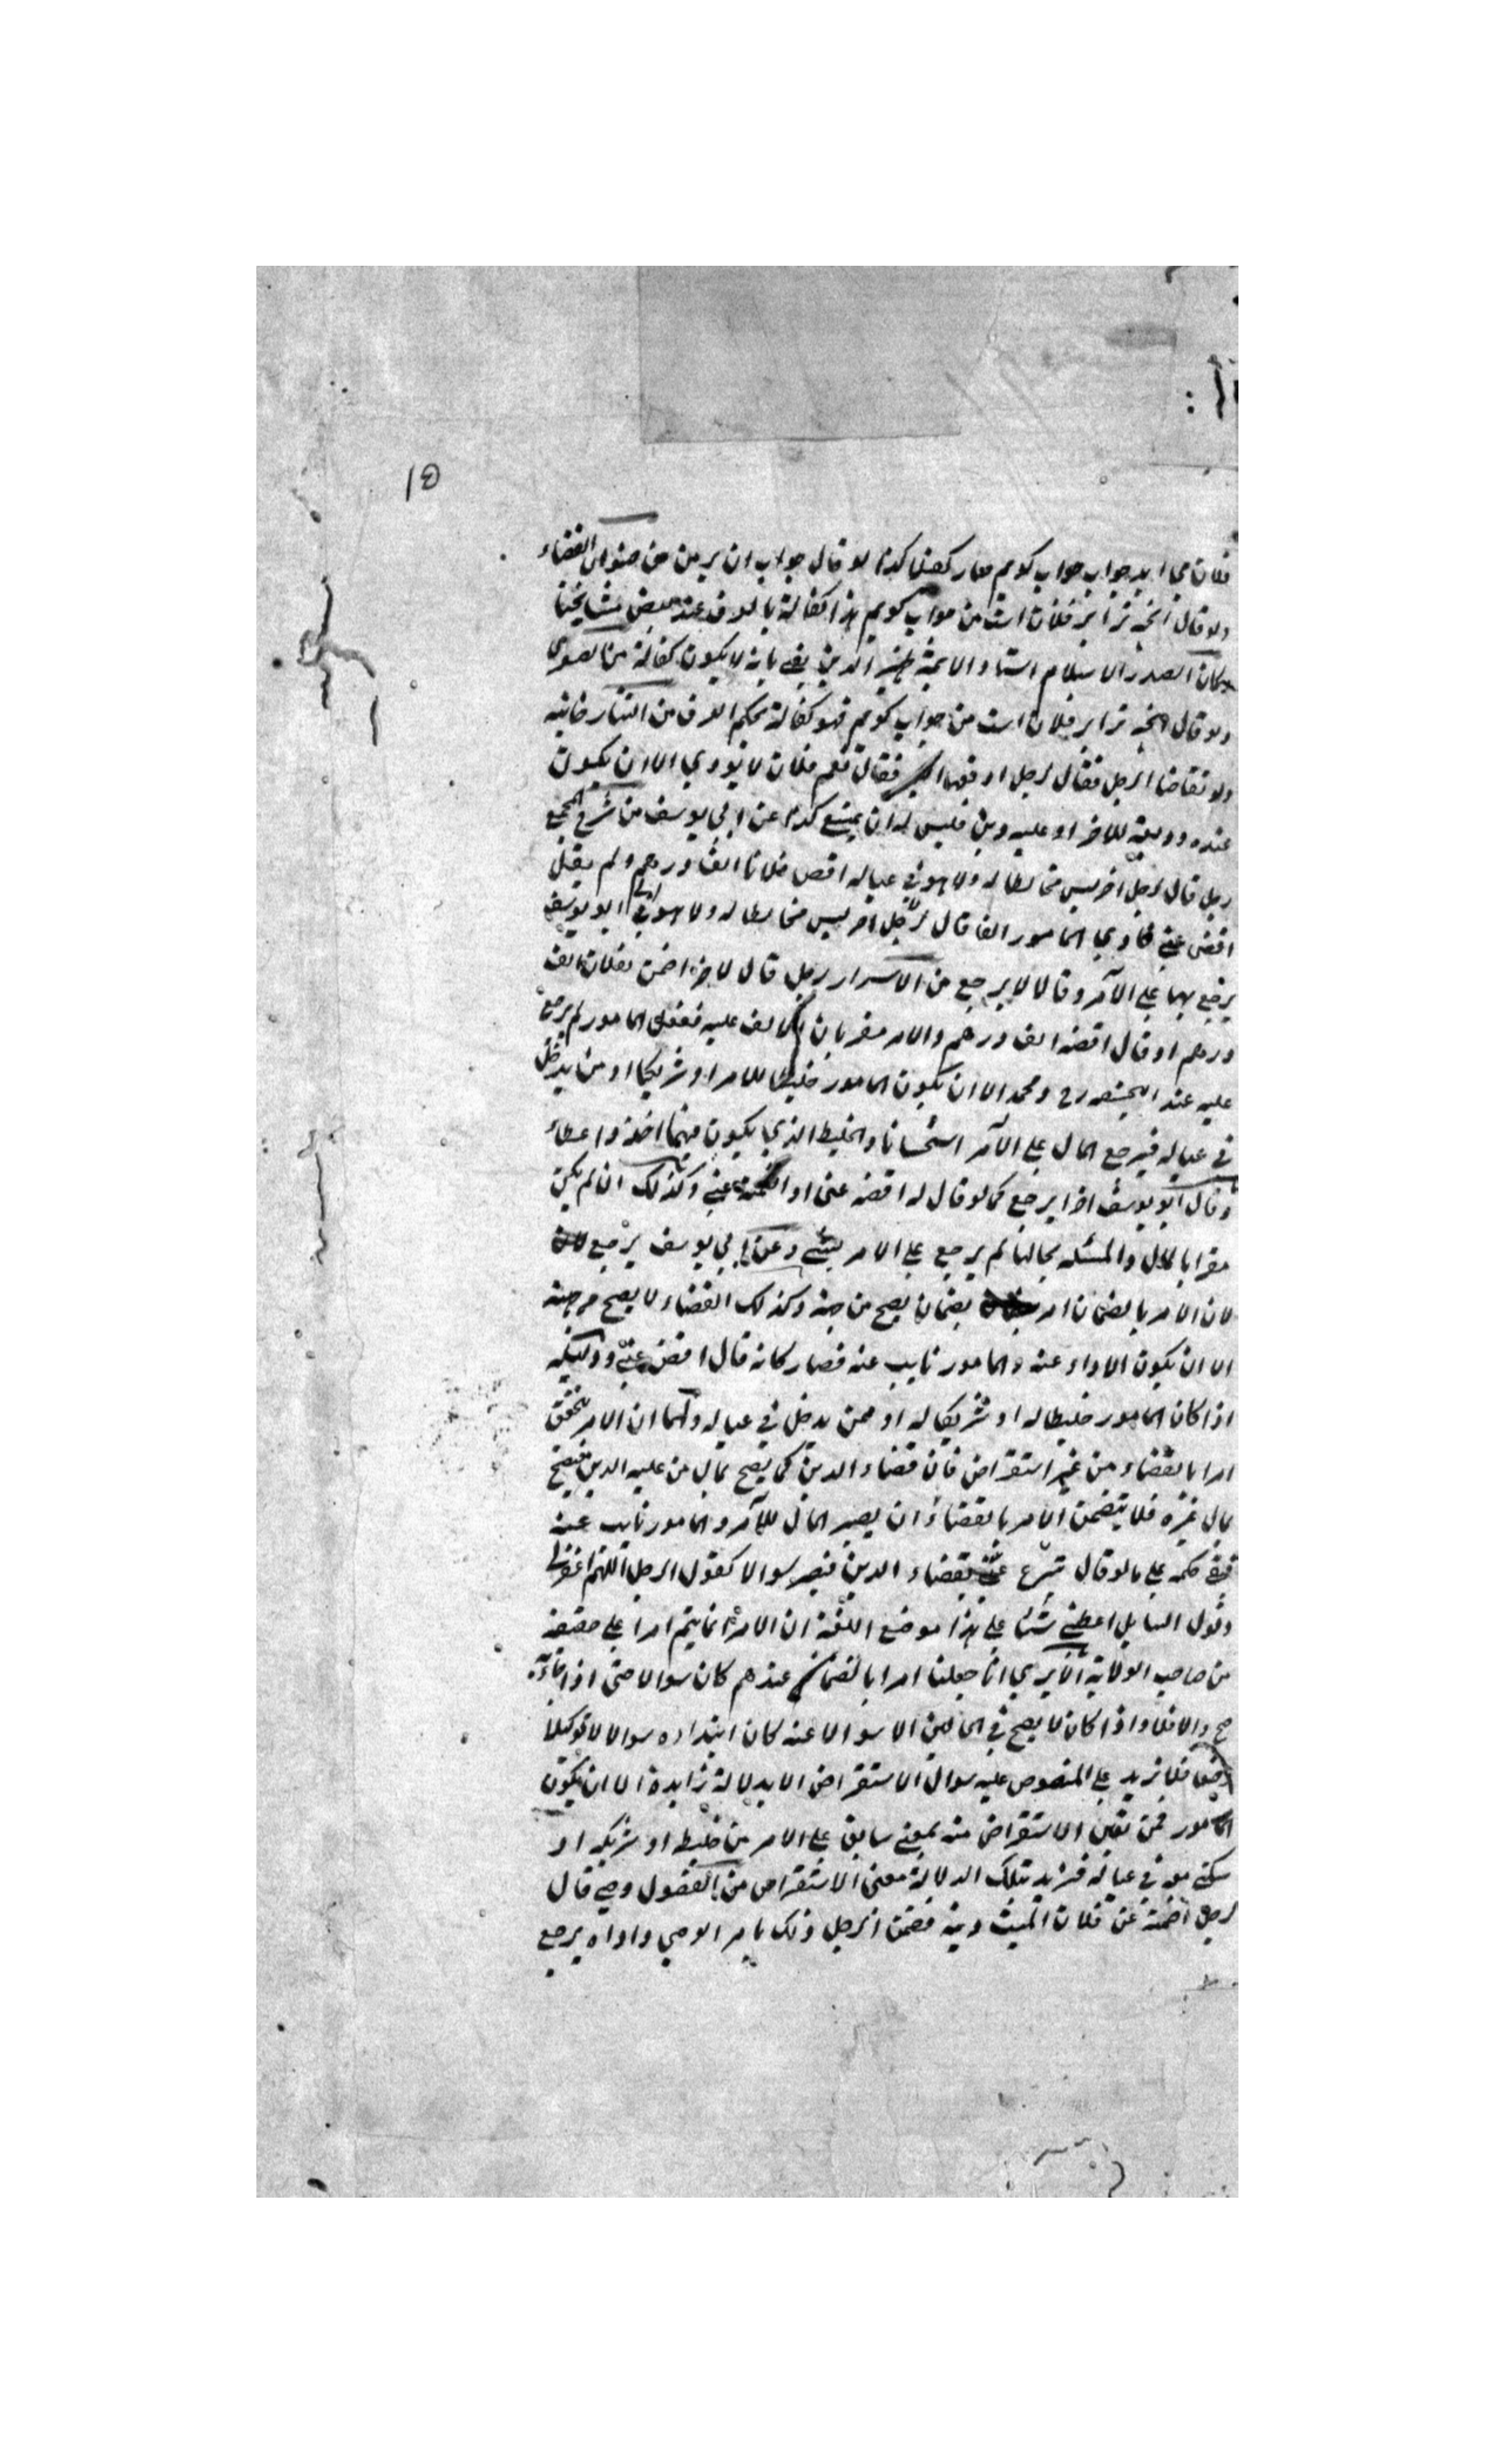 ١٥
فلان مي ايد جواب جواب كويم صار كفيلا كذا لو قال جواب ان بر من من صنوان القضاء
ولو قال انچه ترا بر فلان است من جواب كويم هذا كفالة بالعرف عند بعض مشايخنا
وكان الصدر الاسلام استاد الائمة ظهير الدين يفتي بانه لا يكون كفالة من
ولو قال انچه ترا بر فلان است من جواب كويم فهو كفالة بحكم العرف من التتارخانيه
ولو تقاضا الرجل فقال لرجل ادفعها فقال نعم فلان لا يودي الا ان يكون
عنده وديعة للاخر او عليه دين فليس له ان يمتنع كذا عن ابي يوسف من شرح المجمع
رجل قال لرجل اخر ليس مخالطا له ولا هو في عياله اقض فلانا الف درهم ولم يقل
اقض عني فادي المامور الفا قال لرجل اخر ليس مخالطا له ولا هو في ابو يوسف
يرجع بهما على الآمر وقالا لا يرجع من الاسرار رجل قال لاخر اضمن لفلان الف
درهم او قال اقضه الف درهم والامر مقر بان الالف عليه ففعل المامور لم يرجع
عليه عند ابي حنيفه رح ومحمد الا ان يكون المامور خليطا للامر او شريكا او من يدخل
في عياله فيرجع المال على الآمر استحسانا والخليط الذي يكون بينهما اخذ واعطاء
وقال ابو يوسف اذا يرجع كما لو قال له اقضه عني او اضمنه عني وكذلك ان لم يكن
مقرا بالمال والمسئلة بحالها لم يرجع على الامر بشئ وعن ابي يوسف يرجع
لان الامر بالضمان امر بضمان يصح من جهة وكذلك القضاء لا يصح من جهة
الا ان يكون الاداء عنه والمامور نايب عنه فصار كانه قال اقض عني ودليله
اذا كان المامور خليطا له او شريكا له او ممن يدخل في عياله ولهما ان الامر تحقق
امرا بالقضاء من غير استقراض فان قضاء الدين كما يصح بمال من عليه الدين فيصح
بمال غيره فلا يتضمن الامر بالقضاء ان يصير المال للآمر والمامور نايب عنه
فبقى حكمه على ما لو قال تبرع عني بقضاء الدين فيصير سوالا كقول الرجل اللهم اغفر لي
وقول السايل اعطني شئا على هذا موضع اللغة ان الامر انما يتم امرا على حقيقة
من صاحب الولاية الا يري انا جعلنا امرا بالضمان عندهم كان سوالا حتى اذا
صح والا فلا واذا كان لا يصح في الحالين الا سوالا عنه كان ابتداوه سوالا لا توكيلا
فلا نزيد على المنصوص عليه سوال الاستقراض الا بدلالة زايدة الا ان يكون
المامور ممن تعين الاستقراض منه بمعنى سابق على الامر من خليط او شريك او
هو في عياله فنزيد بتلك الدلالة معنى الاستقراض من الفصول وصي قال
لرجل اضمنه عن فلان الميت دينه فضمن الرجل ذلك بامر الوصي واداه يرجع